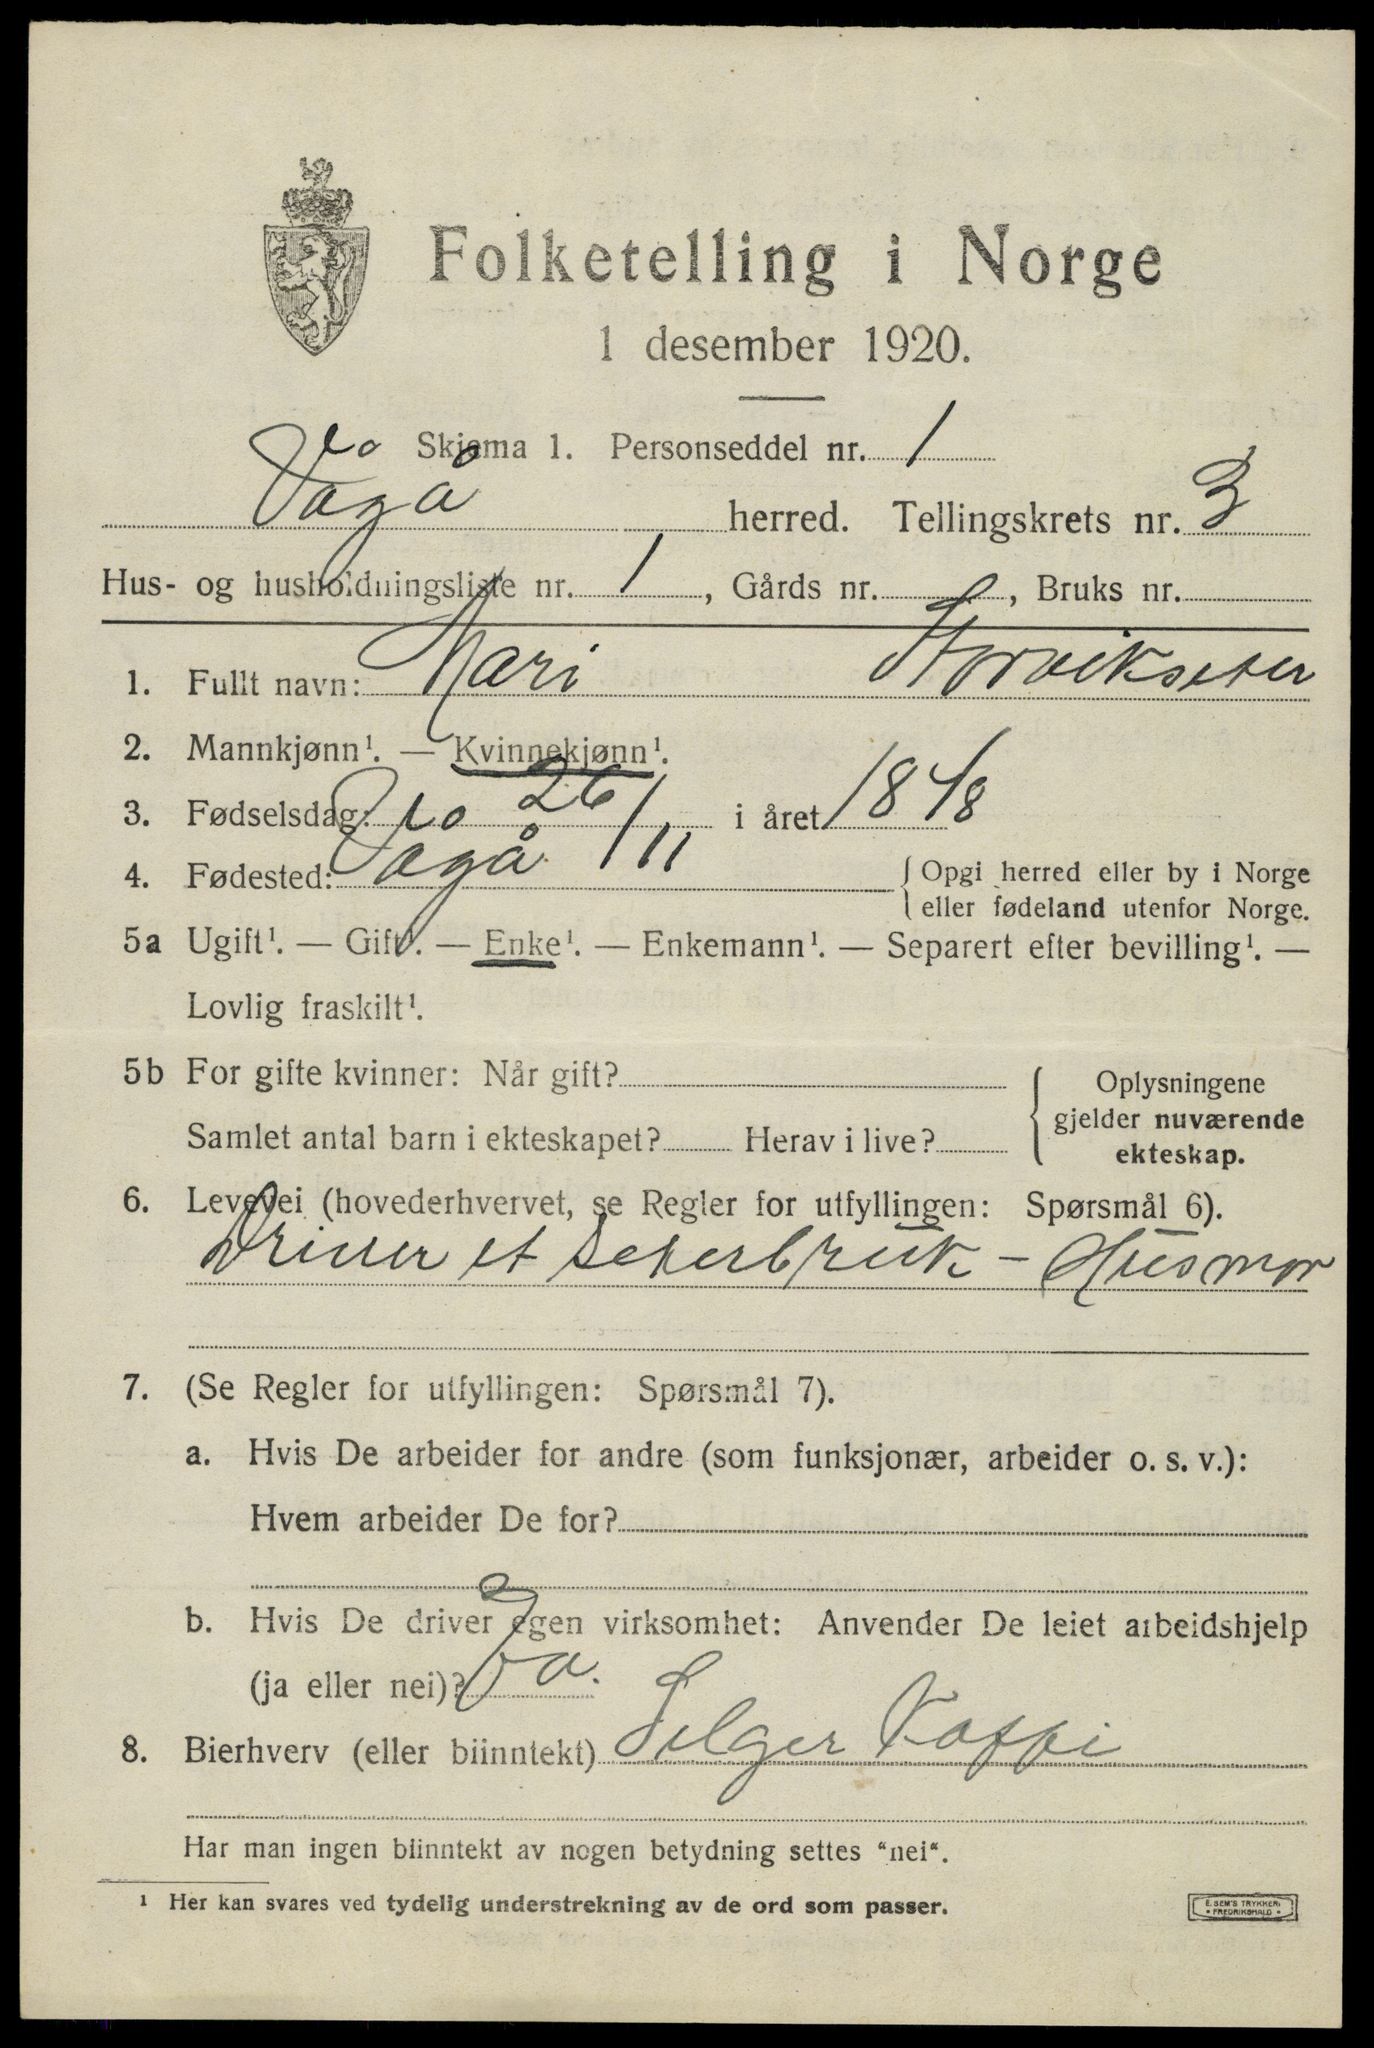 Folketelling i Norge
1 desember 1920.
Skjema 1. Personseddel nr. 1
Vågå herred. Tellingskrets nr. 3
Hus- og husholdningsliste nr. 1, Gårds nr. , Bruks nr.
1. Fullt navn: Mari Storvikseter
2. Mannkjønn¹. — Kvinnekjønn¹.
3. Fødselsdag: 26/11 i året 1848
4. Fødested: Vågå { Opgi herred eller by i Norge
eller fødeland utenfor Norge.
5a Ugift¹. — Gift¹. — Enke¹. — Enkemann¹. — Separert efter bevilling¹. —
Lovlig fraskilt¹.
5b For gifte kvinner: Når gift? { Oplysningene
gjelder nuværende
Samlet antal barn i ekteskapet? Herav i live?
ekteskap.
6. Levevei (hovederhvervet, se Regler for utfyllingen: Spørsmål 6).
Driver et seterbruk – Husmor
7. (Se Regler for utfyllingen: Spørsmål 7).
a. Hvis De arbeider for andre (som funksjonær, arbeider o. s. v.):
Hvem arbeider De for?
b. Hvis De driver egen virksomhet: Anvender De leiet arbeidshjelp
(ja eller nei)? Ja.
8. Bierhverv (eller biinntekt) Selger Kaffi
Har man ingen biinntekt av nogen betydning settes "nei".
¹ Her kan svares ved tydelig understrekning av de ord som passer.
E. SEM'S TRYKKERI
• FREDRIKSHALD •